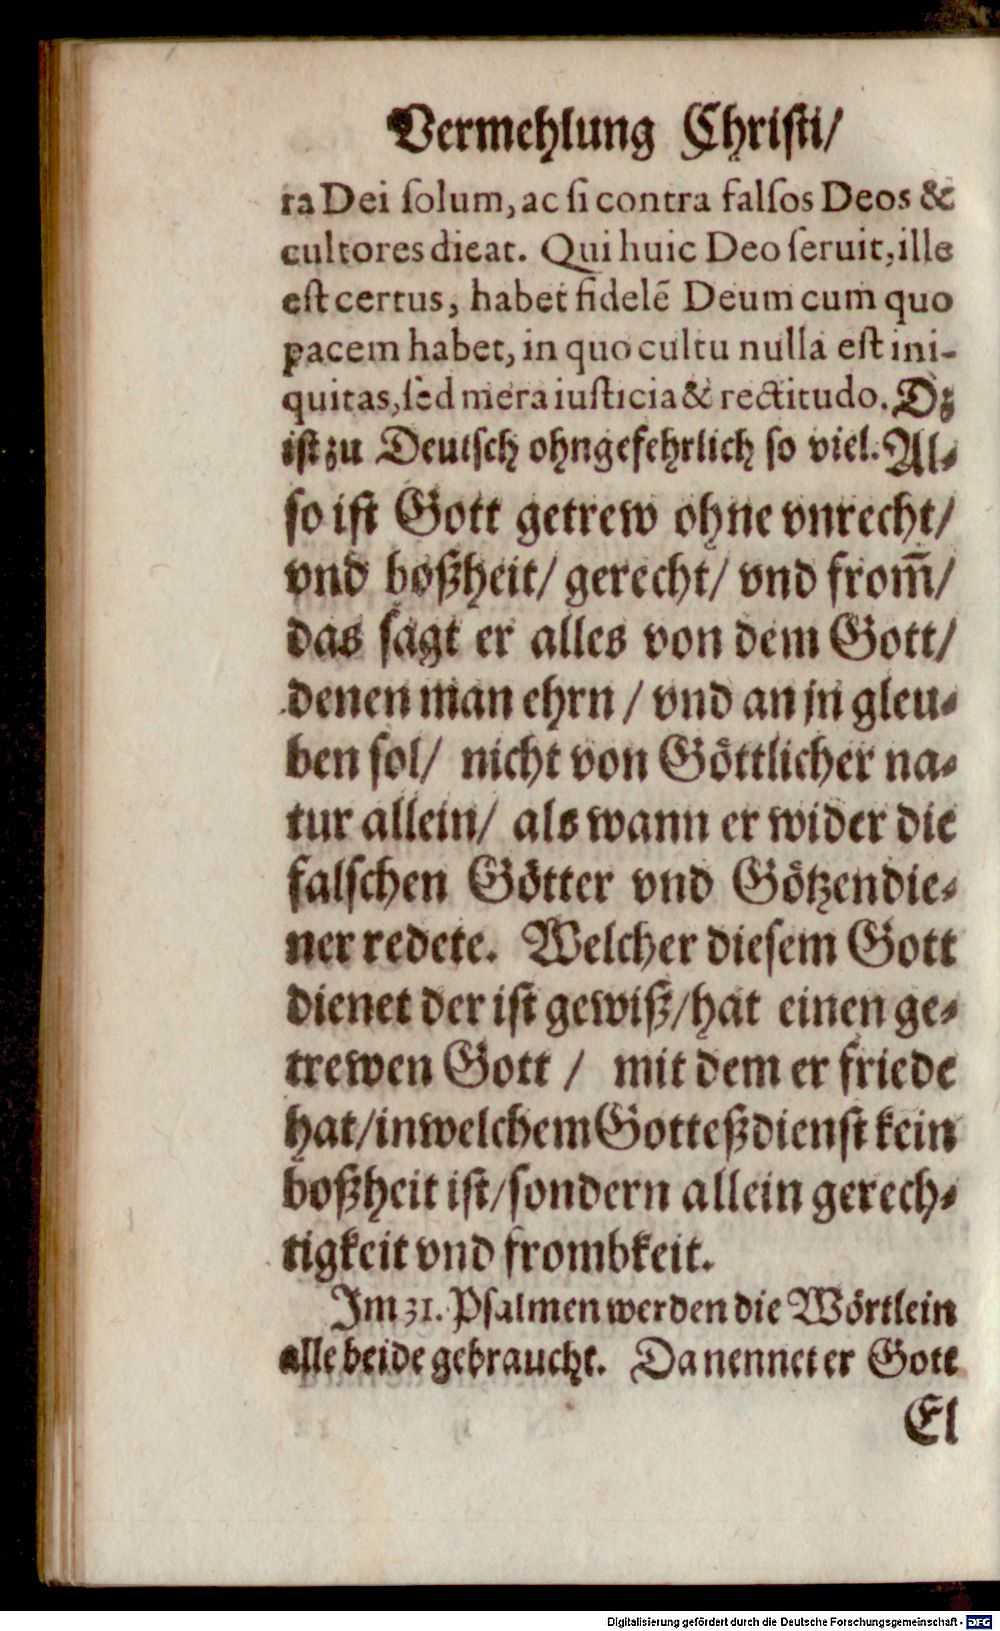 Vermehlung Christi/
ra Dei ſolum, ac ſi contra falſos Deos &
cultores dicat. Qui huic Deo ſeruit, ille
eſt certus, habet fidelē Deum cum quo
pacem habet, in quo cultu nulla eſt ini-
quitas, ſed mera iuſticia & rectitudo. Dz
iſt zu Deutſch ohngefehrlich ſo viel. Al-
ſo iſt Gott getrew ohne vnrecht/
vnd boßheit/ gerecht/ vnd from̃/
das ſagt er alles von dem Gott/
denen man ehrn / vnd an jn gleu-
ben ſol/ nicht von Göttlicher na-
tur allein/ als wann er wider die
falſchen Götter vnd Götzendie-
ner redete. Welcher dieſem Gott
dienet der iſt gewiß/ hat einen ge-
trewen Gott / mit dem er friede
hat/ in welchem Gotteßdienſt kein
boßheit iſt/ ſondern allein gerech-
tigkeit vnd frombkeit.
Im 31. Pſalmen werden die Wörtlein
alle beide gebraucht. Da nennet er Gott
El
Digitalisierung gefördert durch die Deutsche Forschungsgemeinschaft - DFG